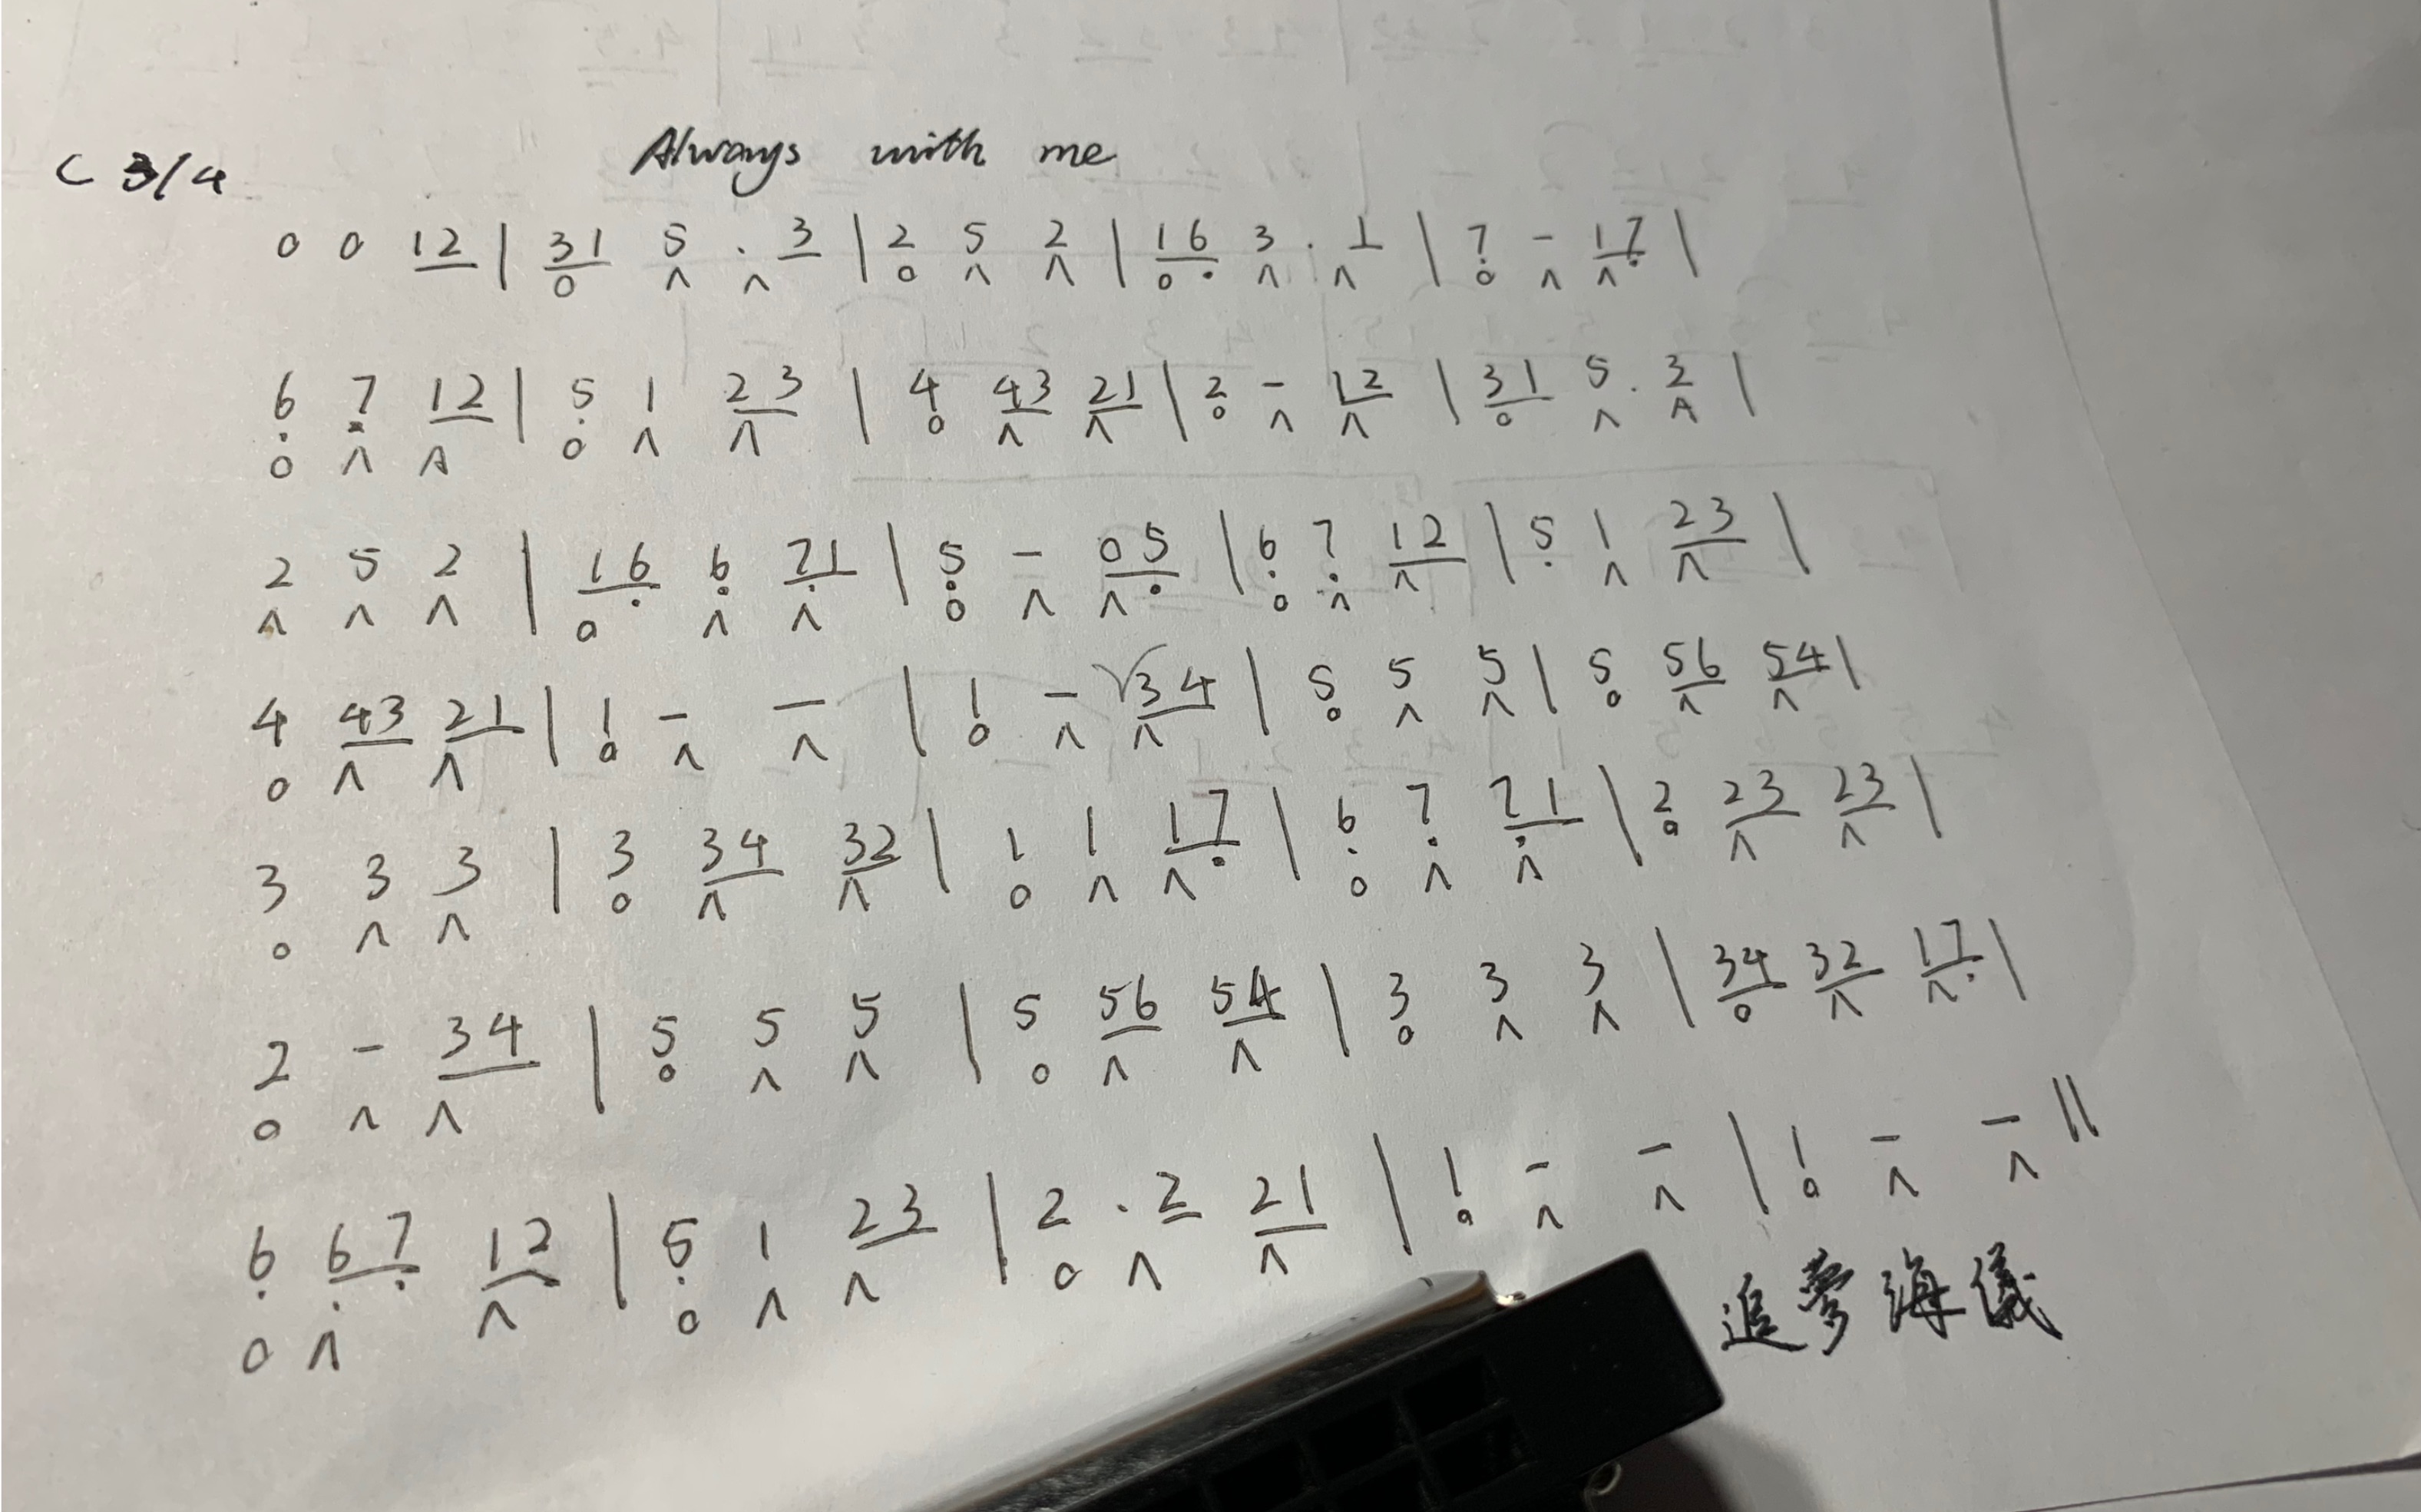 Always with me
C 3/4
0 0 12 | 31 5 . 3 | 2 5 2 | 16 3 . 1 | 7 - 17 |
6 7 12 | 5 1 23 | 4 43 21 | 2 - 12 | 31 5 . 3 |
2 5 2 | 16 6 71 | 5 - 05 | 6 7 12 | 5 1 23 |
4 43 21 | 1 - - | 1 - 34 | 5 5 5 | 5 56 54 |
3 3 3 | 3 34 32 | 1 1 17 | 6 7 71 | 2 23 23 |
2 - 34 | 5 5 5 | 5 56 54 | 3 3 3 | 34 32 17 |
6 67 12 | 5 1 23 | 2 . 2 21 | 1 - - | 1 - - ||
追夢海儀